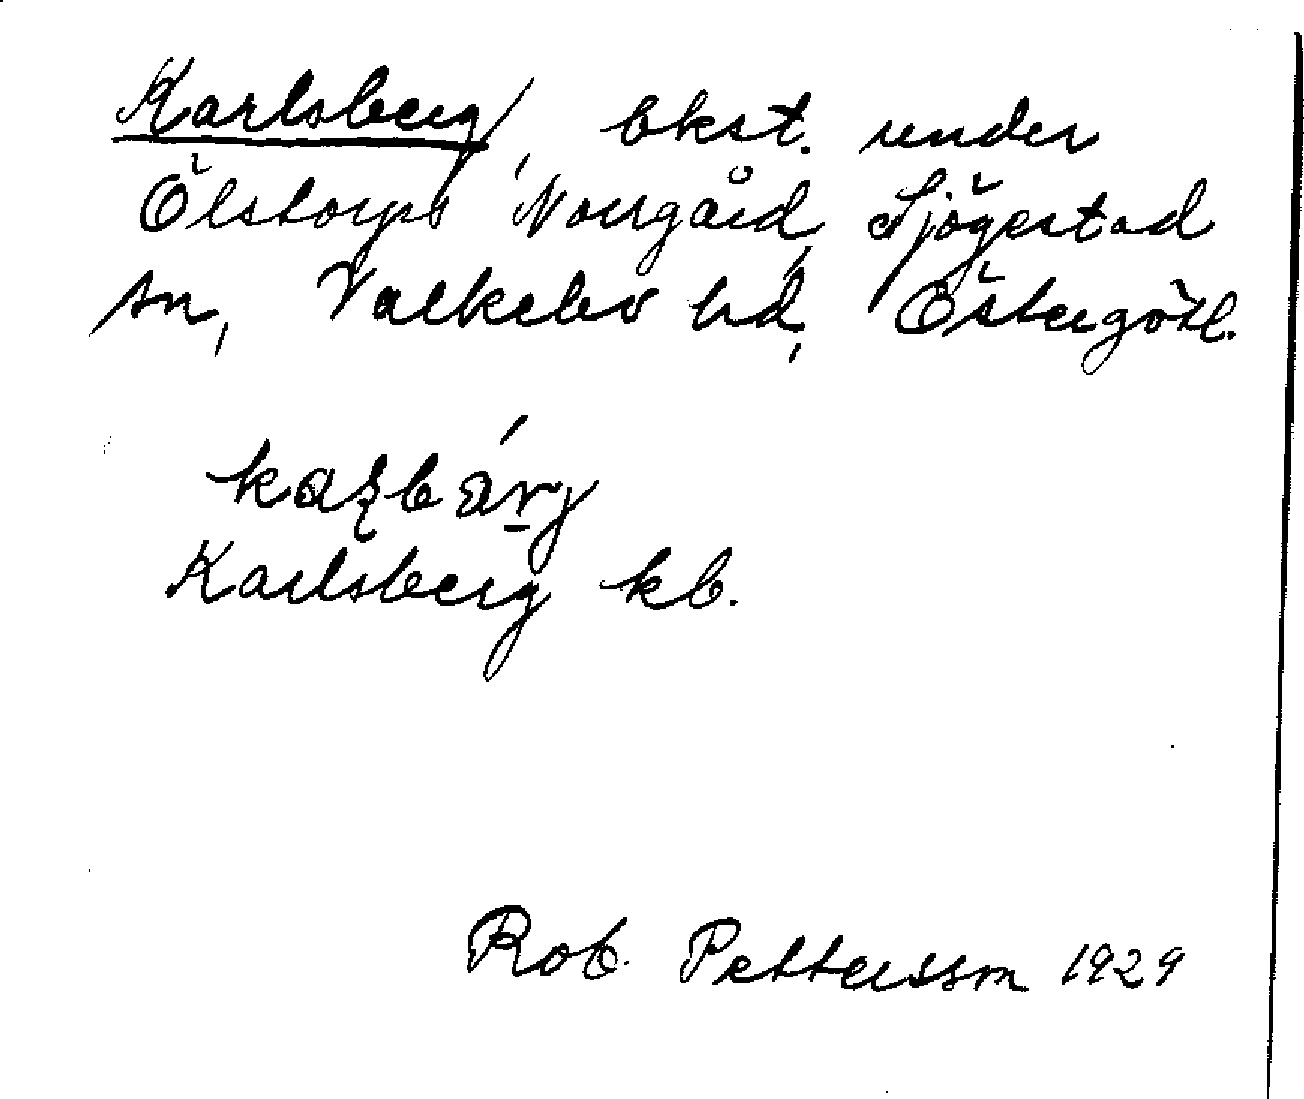 Karlsberg, bkst. under
Ölstorps Norrgård, Sjögestad
sn, Valkebo hd, Östergötl.
Karlsberg kb.
Rob. Pettersson 1929